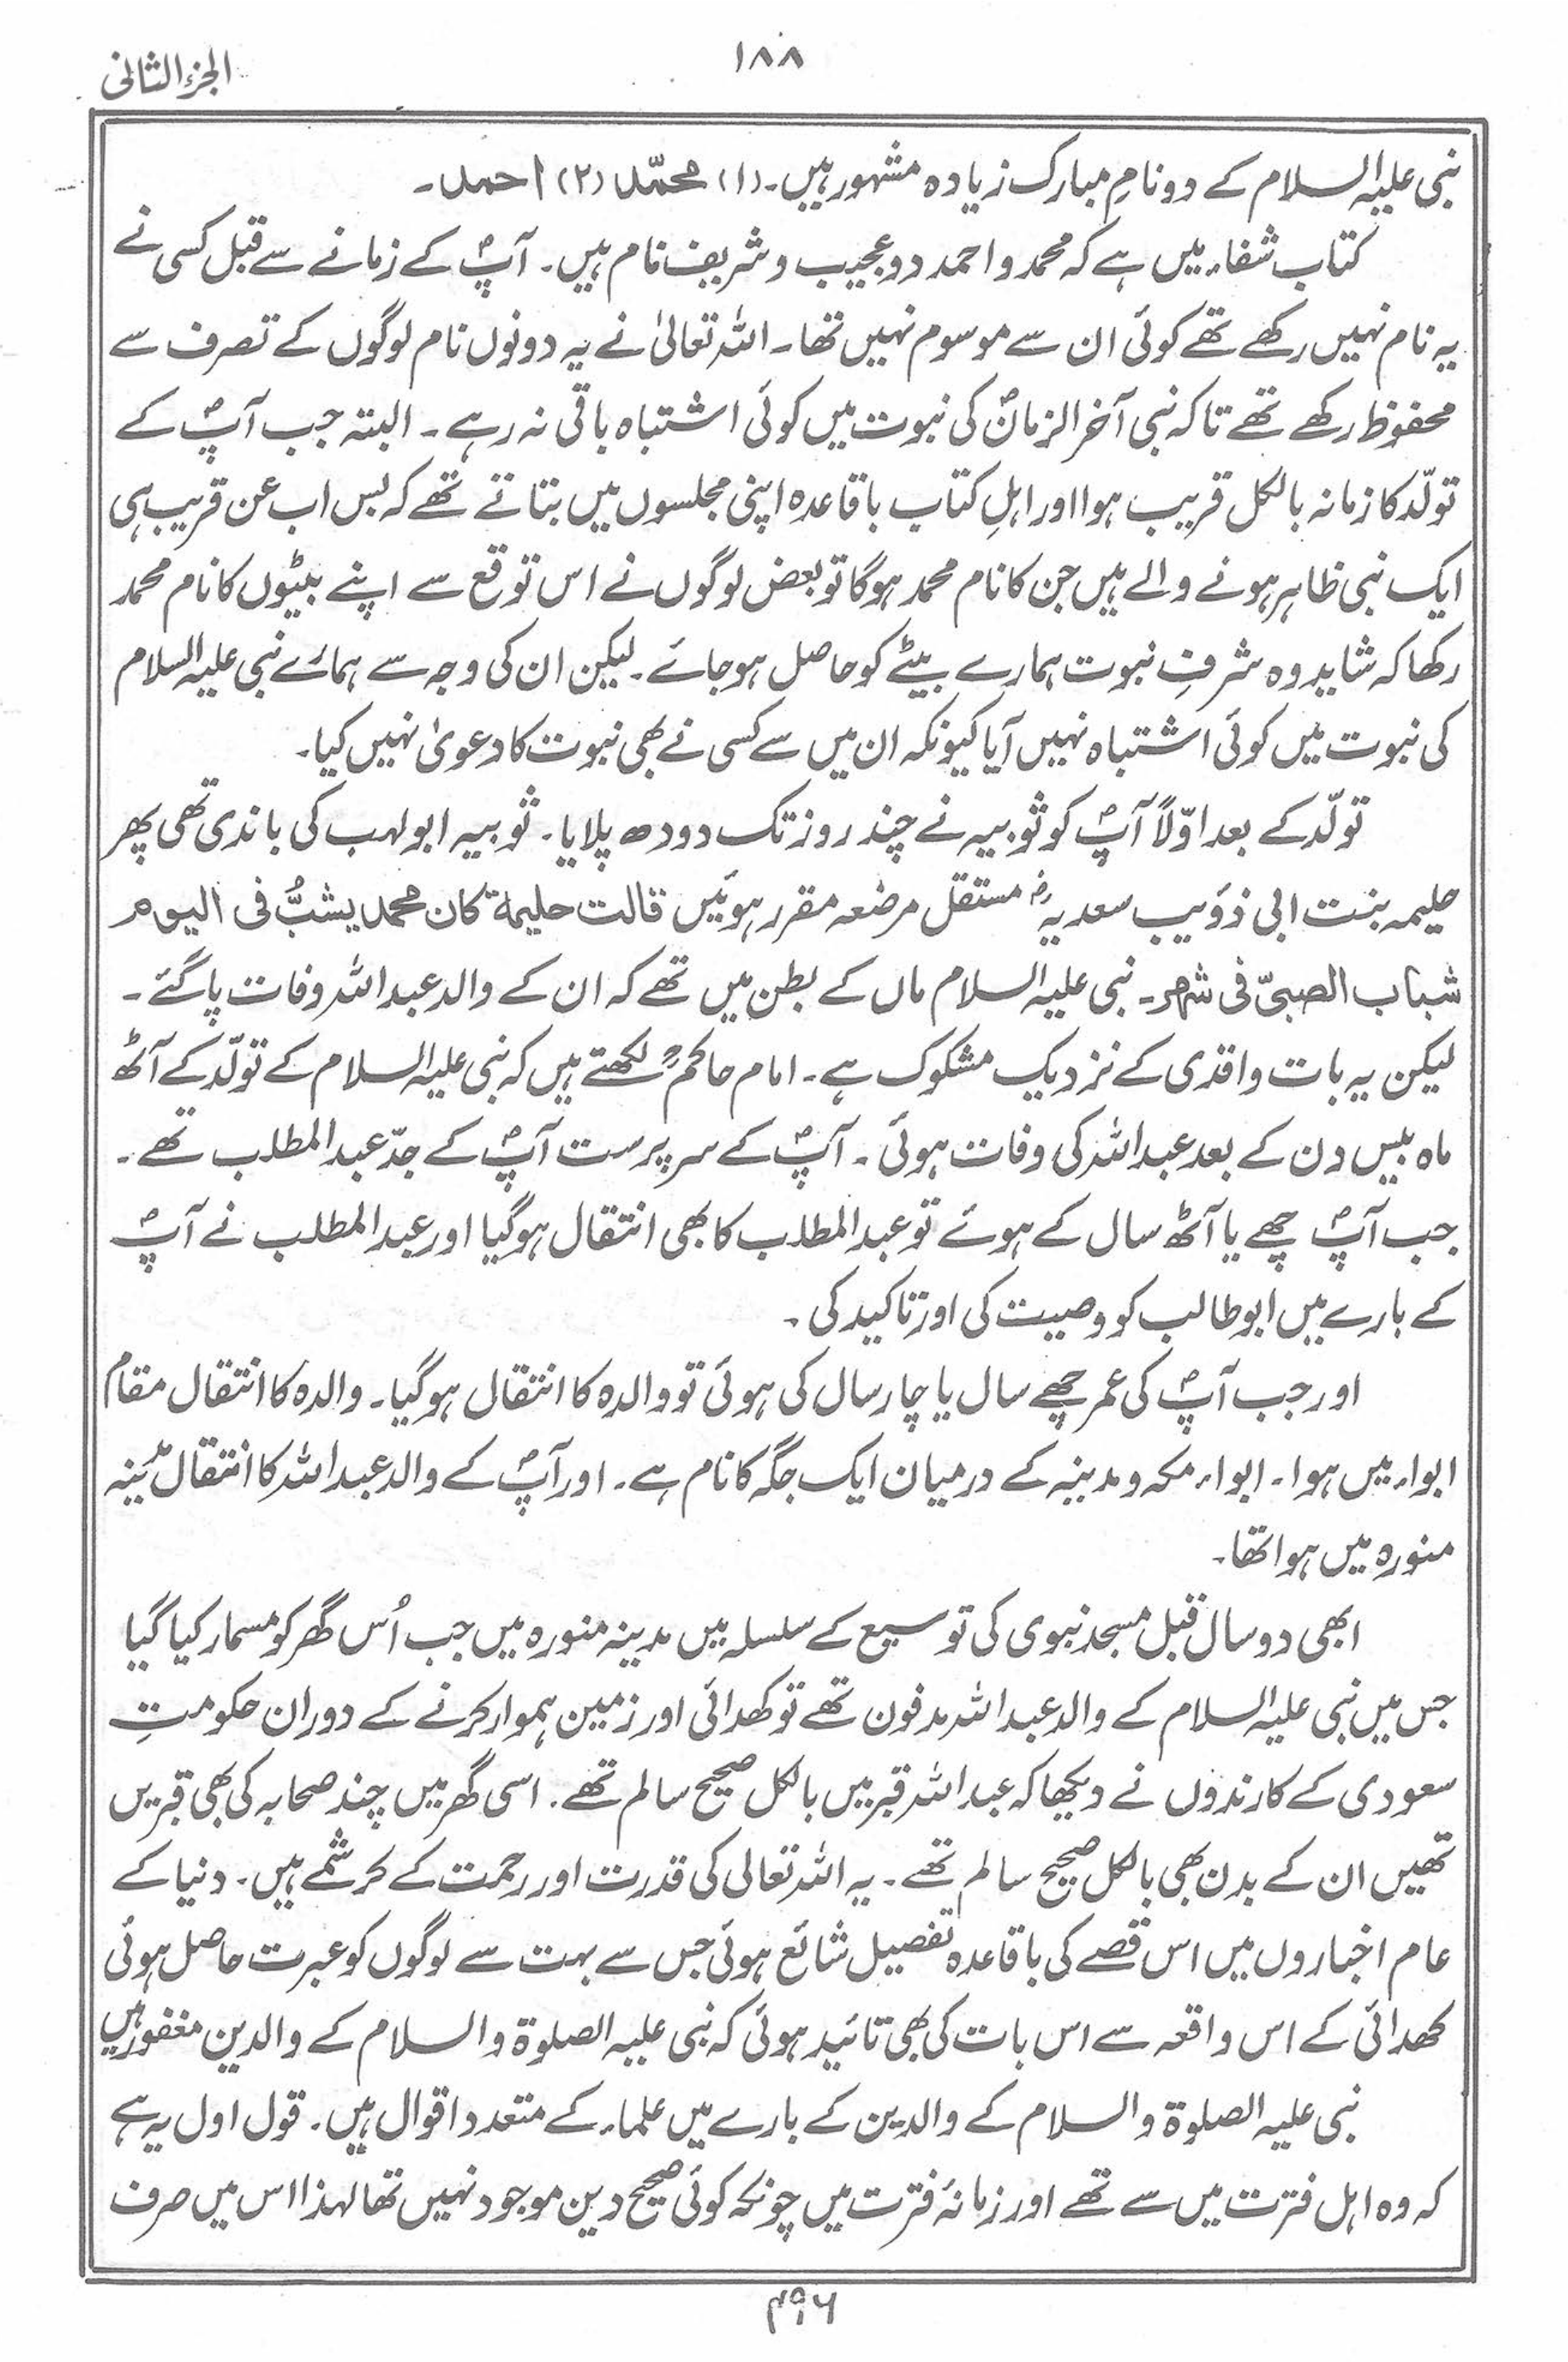 ١٨٨
الجزء الثانی
نبی علیہ السلام کے دو نامِ مبارک زیادہ مشہور ہیں۔ (۱) محمّد (۲) احمد۔
کتاب شفاء میں ہے کہ محمد و احمد دو عجیب و شریف نام ہیں۔ آپؐ کے زمانے سے قبل کسی نے
یہ نام نہیں رکھے تھے کوئی ان سے موسوم نہیں تھا۔ اللہ تعالیٰ نے یہ دونوں نام لوگوں کے تصرف سے
محفوظ رکھے تھے تاکہ نبی آخر الزمانؐ کی نبوت میں کوئی اشتباہ باقی نہ رہے۔ البتہ جب آپؐ کے
تولّد کا زمانہ بالکل قریب ہوا اور اہلِ کتاب باقاعدہ اپنی مجلسوں میں بتاتے تھے کہ بس اب عن قریب ہی
ایک نبی ظاہر ہونے والے ہیں جن کا نام محمد ہوگا تو بعض لوگوں نے اس توقع سے اپنے بیٹوں کا نام محمد
رکھا کہ شاید وہ شرفِ نبوت ہمارے بیٹے کو حاصل ہوجائے۔ لیکن ان کی وجہ سے ہمارے نبی علیہ السلام
کی نبوت میں کوئی اشتباہ نہیں آیا کیونکہ ان میں سے کسی نے بھی نبوت کا دعویٰ نہیں کیا۔
تولّد کے بعد اوّلاً آپؐ کو ثوبیہ نے چند روز تک دودھ پلایا۔ ثوبیہ ابولہب کی باندی تھی پھر
حلیمہ بنت ابی ذؤیب سعدیہؓ مستقل مرضعہ مقرر ہوئیں قالت حلیمۃ کان محمد یشبُّ فی الیوم
شباب الصبیّ فی شھر۔ نبی علیہ السلام ماں کے بطن میں تھے کہ ان کے والد عبد اللہ وفات پا گئے۔
لیکن یہ بات واقدی کے نزدیک مشکوک ہے۔ امام حاکمؒ لکھتے ہیں کہ نبی علیہ السلام کے تولّد کے آٹھ
ماہ بیس دن کے بعد عبد اللہ کی وفات ہوئی۔ آپؐ کے سرپرست آپؐ کے جدّ عبد المطلب تھے۔
جب آپؐ چھے یا آٹھ سال کے ہوئے تو عبد المطلب کا بھی انتقال ہوگیا اور عبد المطلب نے آپؐ
کے بارے میں ابو طالب کو وصیت کی اور تاکید کی۔
اور جب آپؐ کی عمر چھے سال یا چار سال کی ہوئی تو والدہ کا انتقال ہوگیا۔ والدہ کا انتقال مقام
ابواء میں ہوا۔ ابواء مکہ و مدینہ کے درمیان ایک جگہ کا نام ہے۔ اور آپؐ کے والد عبد اللہ کا انتقال مدینہ
منورہ میں ہوا تھا۔
ابھی دو سال قبل مسجد نبوی کی توسیع کے سلسلہ میں مدینہ منورہ میں جب اُس گھر کو مسمار کیا گیا
جس میں نبی علیہ السلام کے والد عبد اللہ مدفون تھے تو کھدائی اور زمین ہموار کرنے کے دوران حکومتِ
سعودی کے کارندوں نے دیکھا کہ عبد اللہ قبر میں بالکل صحیح سالم تھے۔ اسی گھر میں چند صحابہ کی بھی قبریں
تھیں ان کے بدن بھی بالکل صحیح سالم تھے۔ یہ اللہ تعالی کی قدرت اور رحمت کے کرشمے ہیں۔ دنیا کے
عام اخباروں میں اس قصے کی باقاعدہ تفصیل شائع ہوئی جس سے بہت سے لوگوں کو عبرت حاصل ہوئی
کھدائی کے اس واقعہ سے اس بات کی بھی تائید ہوئی کہ نبی علیہ الصلوۃ والسلام کے والدین مغفور ہیں
نبی علیہ الصلوۃ والسلام کے والدین کے بارے میں علماء کے متعدد اقوال ہیں۔ قول اول یہ ہے
کہ وہ اہل فترت میں سے تھے اور زمانۂ فترت میں چونکہ کوئی صحیح دین موجود نہیں تھا لہذا اس میں صرف
۴۹۶